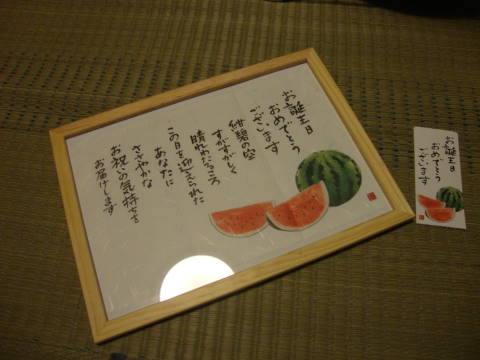 お誕生日
おめでとう
ございます
紺碧の空
すがすがしく
晴れわたるころ
この日を迎えられた
あなたに
ささやかな
お祝いの気持ちを
お届けします
お誕生日
おめでとう
ございます